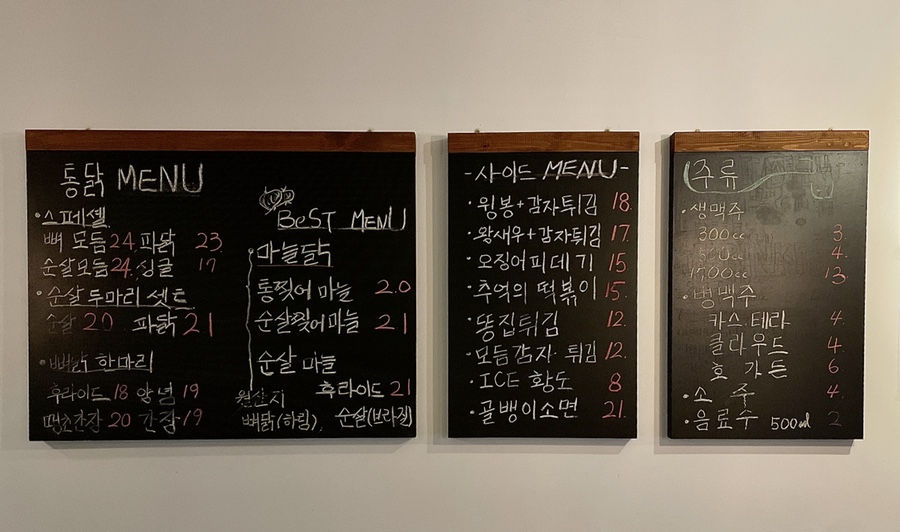 통닭 MENU
· 스페셜
뼈 모듬 24. 파닭 23
순살모듬 24. 싱글 17
· 순살 두마리 셋트
순살 20 파닭 21
· 뼈닭 한마리
후라이드 18 양념 19
매운간장 20 간장 19
BeST MENU
마늘닭
통찢어 마늘 2.0
순살찢어마늘 21
순살 마늘
후라이드 21
원산지
뼈닭(하림), 순살(브라질)
-사이드 MENU-
· 윙봉+감자튀김 18.
· 왕새우+감자튀김 17.
· 오징어피데기 15
· 추억의 떡볶이 15.
· 똥집튀김 12.
· 모듬감자· 튀김 12.
· ICE 황도 8
· 골뱅이소면 21.
주류
· 생맥주
300cc 3
500cc 4.
1700cc 13
· 병맥주
카스.테라 4.
클라우드 4.
호가든 6.
· 소 주 4.
· 음료수 500ml 2